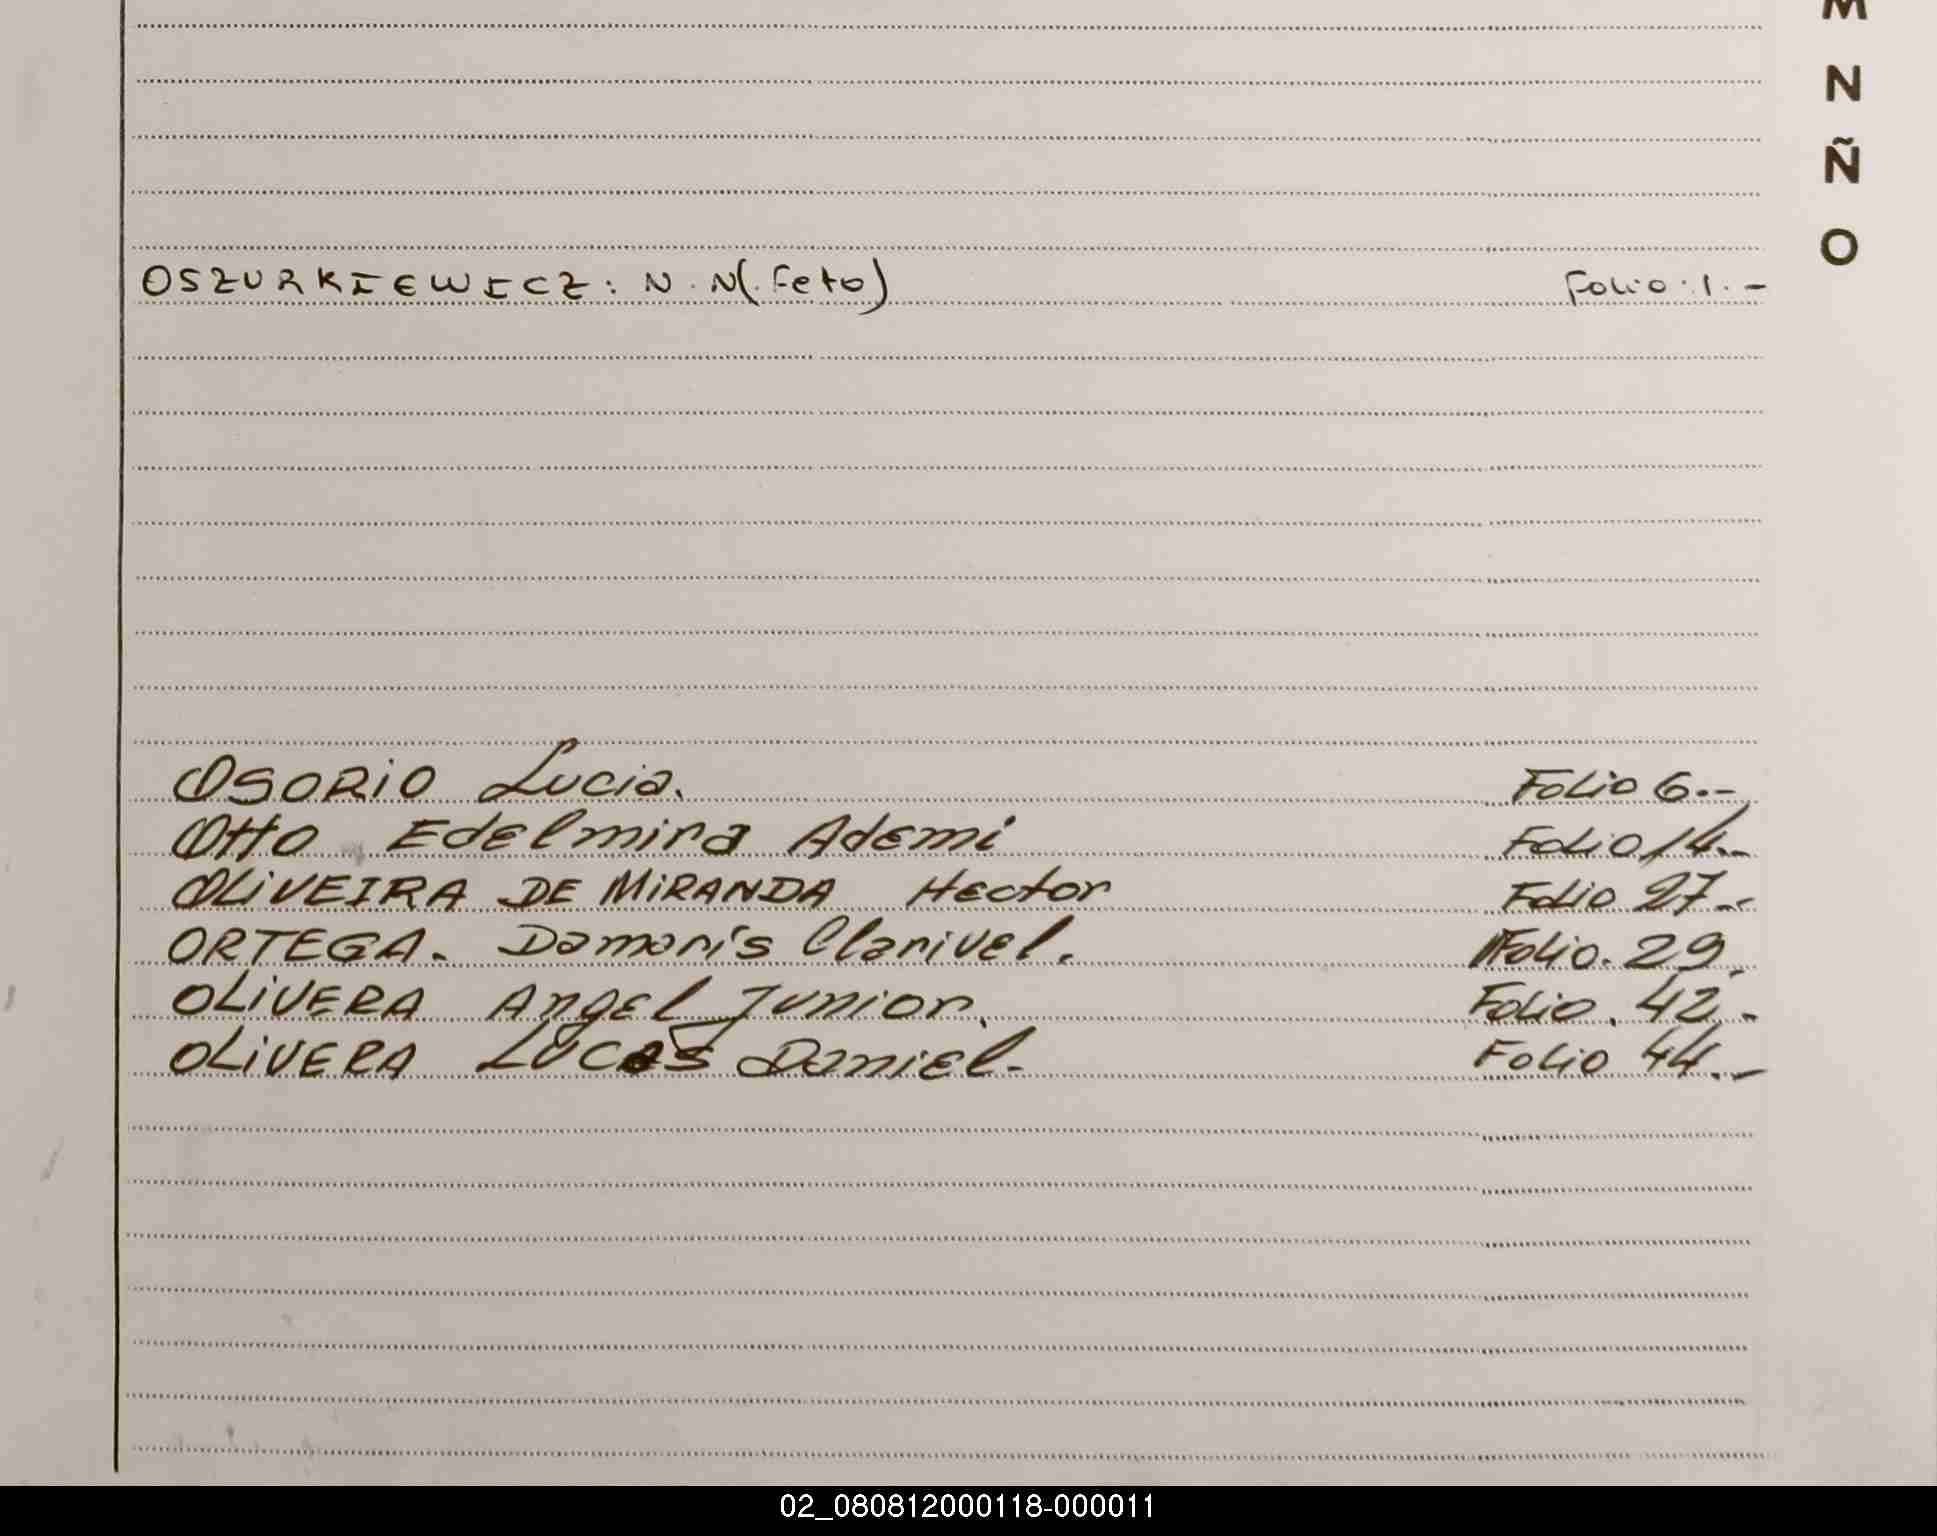 M
N
Ñ
O
OSZURKIEWICZ: N. N(. Feto) Folio: 1. -
OSORIO Lucia. Folio 6.-
Otto Edelmira Ademi Folio 14.-
OLIVEIRA DE MIRANDA Hector Folio 27.-
ORTEGA. Damaris Clarivel. Folio. 29.
OLIVERA Angel Junior. Folio. 42.-
OLIVERA LUCAS Daniel.- Folio 44.-
02_080812000118-000011